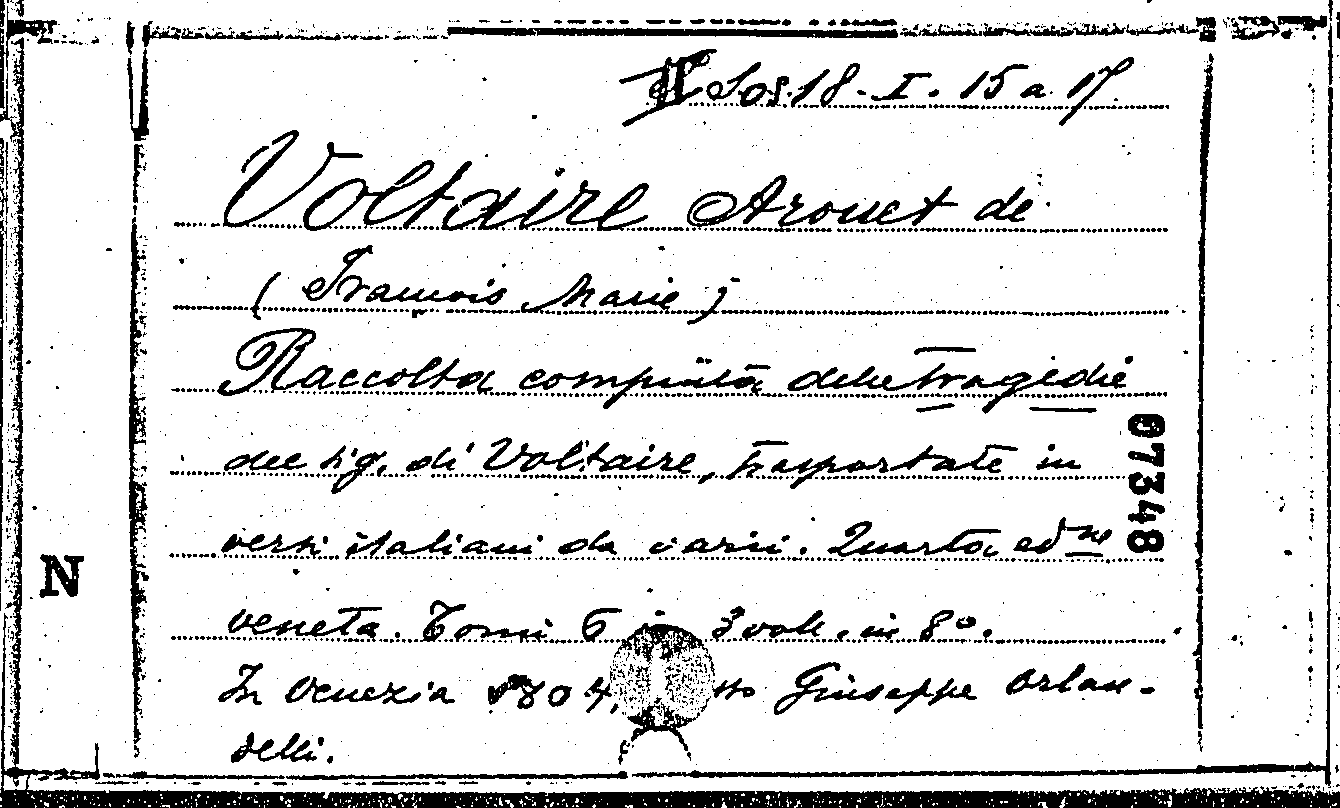 Sos. 18 - I. 15 a 17
Voltaire Arouet de
(Francois Marie)
Raccolta compiuta delle tragedie
del sig. di Voltaire, trasportate in
versi italiani da varii. Quarta ed.ne
veneta. Tomi 6 in 3 voll. in 8º.
In Venezia 1804, Giuseppe Orlan-
delli.
07348
N